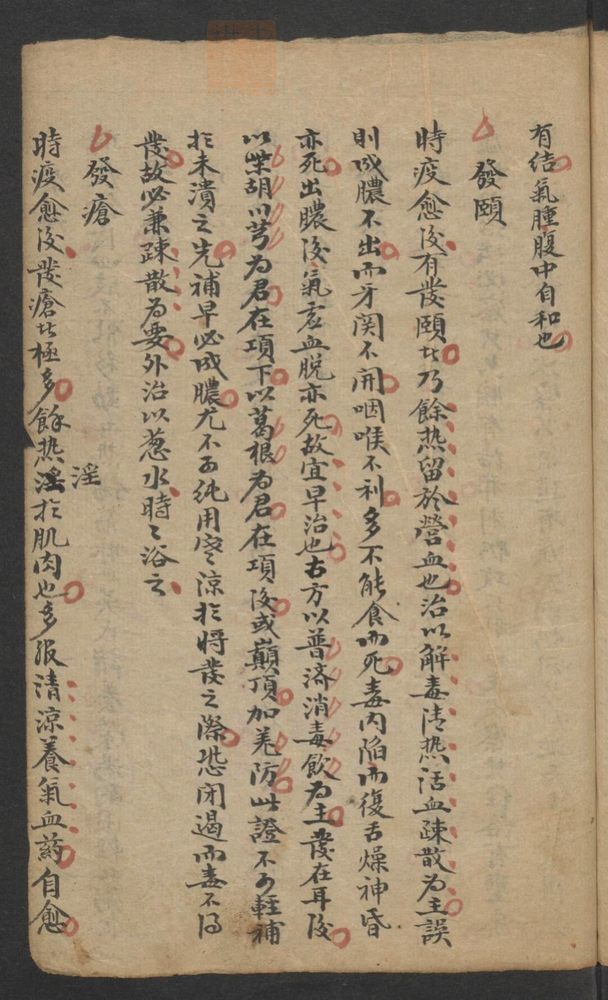 有結氣腫腹中自和也
發頤
時疫愈後有發頤此乃餘热留於營血也治以解毒清热活血疎散为主誤
則成膿不出而牙関不開咽喉不利多不能食而死毒内陷而復舌燥神昏
亦死出膿後氣虛血脱亦死故宜早治也古方以普濟消毒飲为主發在耳後
以柴胡川芎为君在項下以葛根为君在項後或巔頂加羌防此證不可輕補
於未潰之先補早必成膿尤不可純用寒涼於将發之際恐閉遏而毒不得
發故必兼疎散为要外治以葱水時〻浴之
發瘡
時疫愈後發瘡此極多餘热淫於肌肉也多服清涼養氣血药自愈
淫